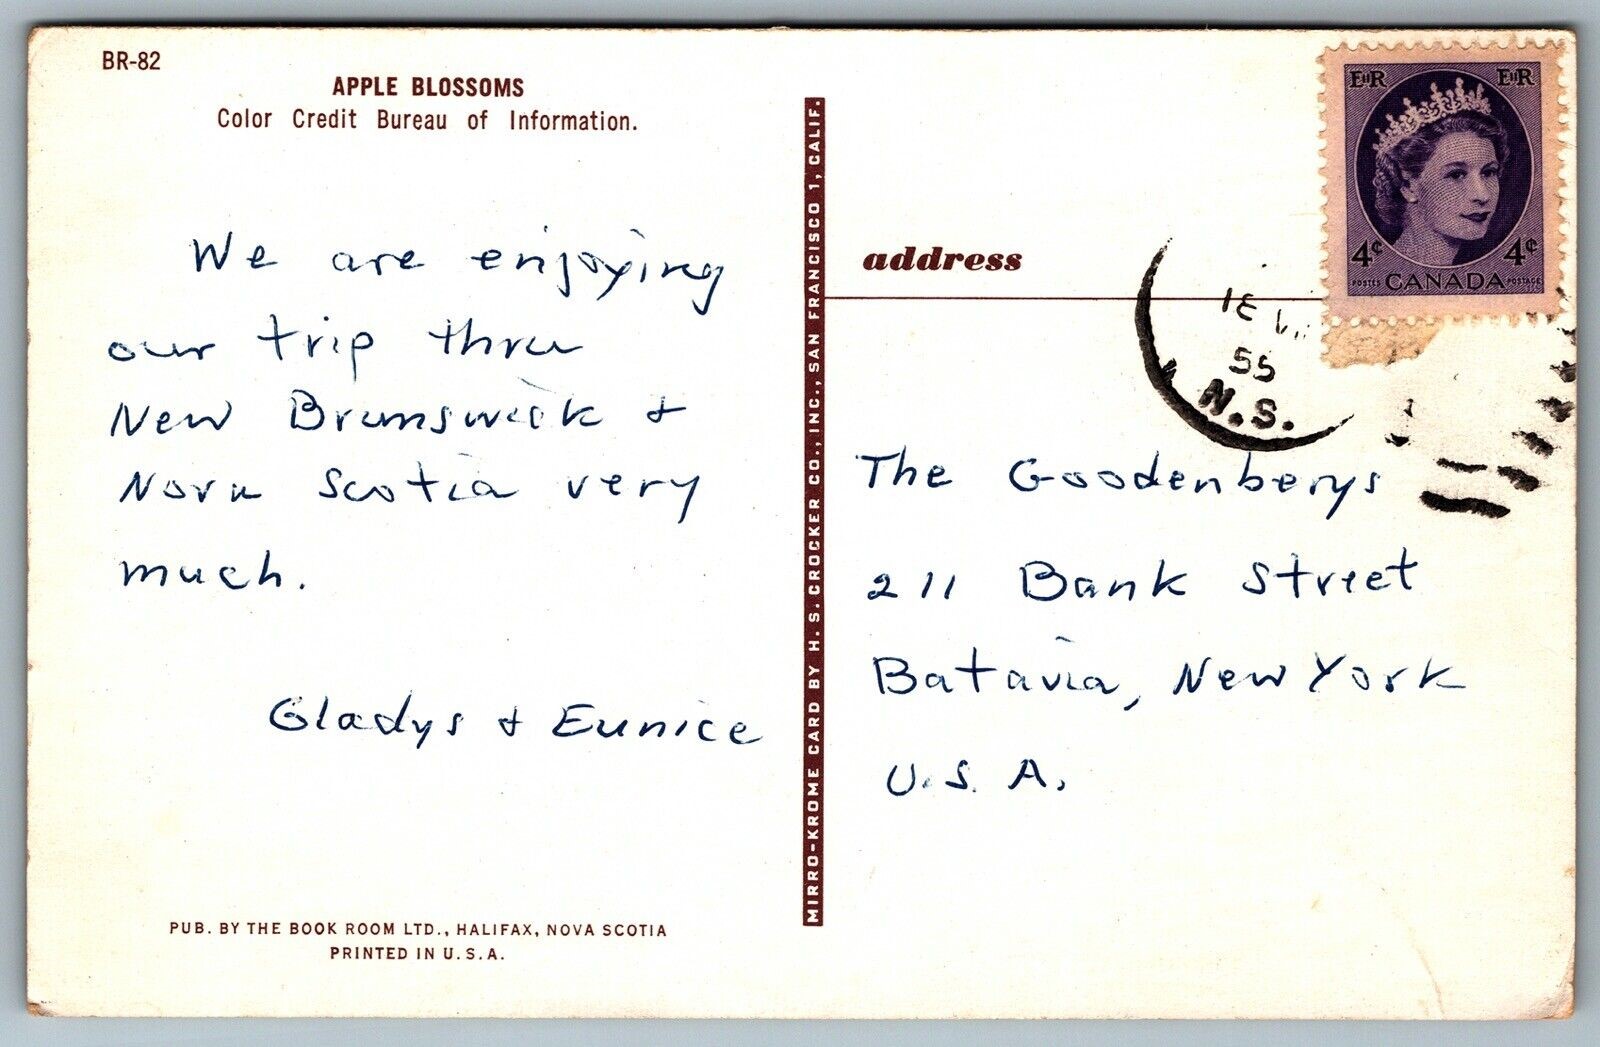 BR-82
APPLE BLOSSOMS
Color Credit Bureau of Information.
We are enjoying
our trip thru
New Brunswick +
Nova Scotia very
much.
Gladys + Eunice
PUB. BY THE BOOK ROOM LTD., HALIFAX, NOVA SCOTIA
PRINTED IN U.S.A.
MIRRO-KROME CARD BY H. S. CROCKER CO., INC., SAN FRANCISCO 1, CALIF.
address
EIIR EIIR
4¢ 4¢
POSTES CANADA POSTAGE
55
N.S.
The Goodenberys
211 Bank Street
Batavia, New York
U.S.A.